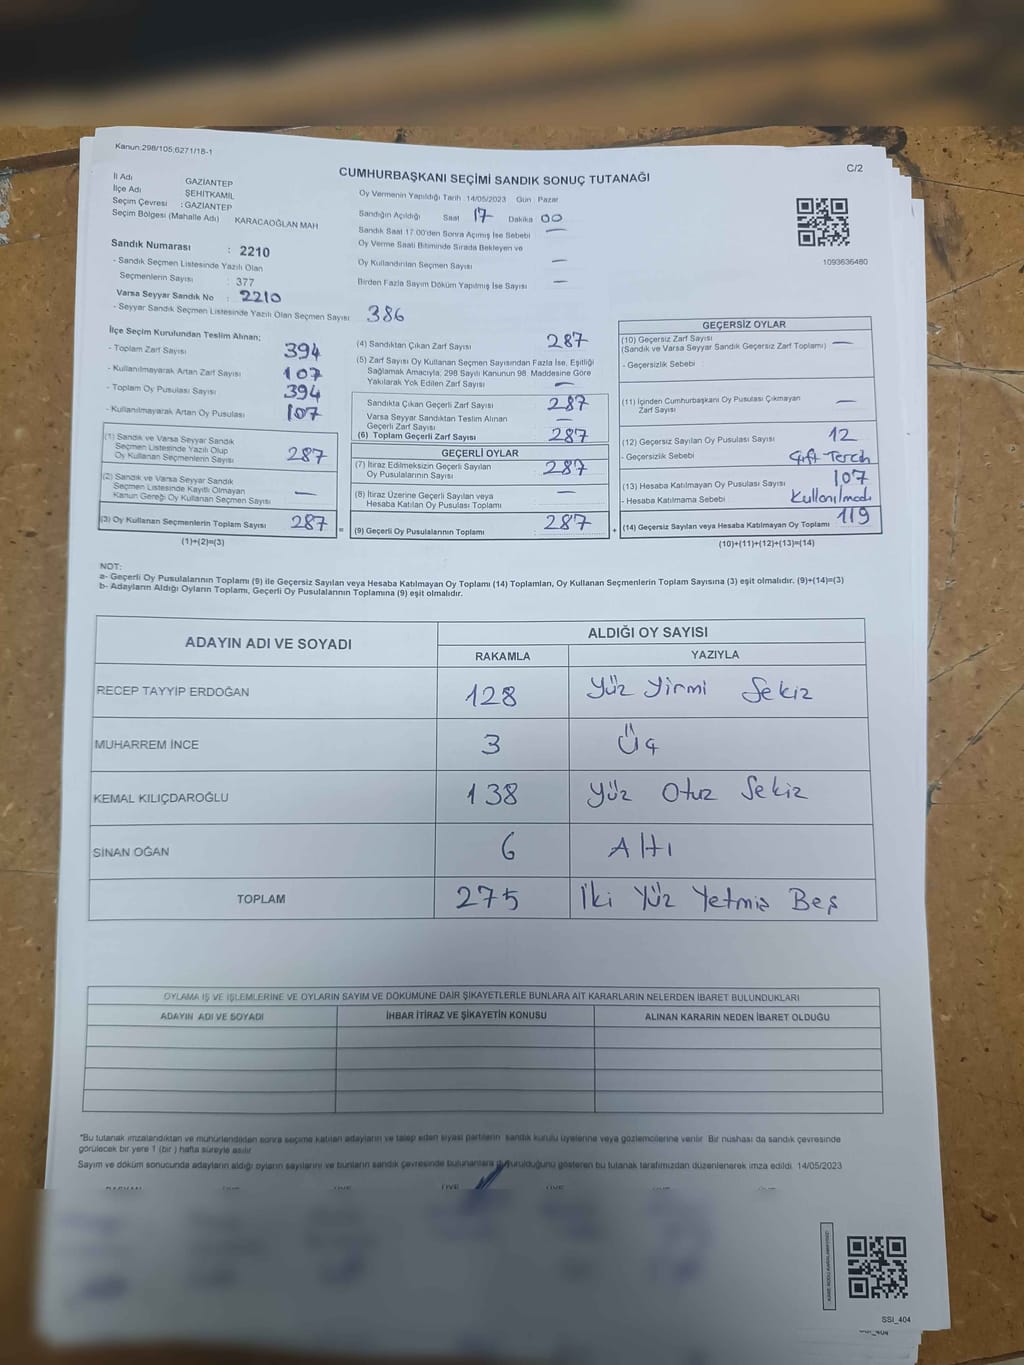 Kanun:298/105,6271/18-1
C/2
CUMHURBAŞKANI SEÇİMİ SANDIK SONUÇ TUTANAĞI
İl Adı GAZİANTEP
İlçe Adı ŞEHİTKAMİL
Seçim Çevresi : GAZİANTEP
Seçim Bölgesi (Mahalle Adı) KARACAOĞLAN MAH
Sandık Numarası : 2210
- Sandık Seçmen Listesinde Yazılı Olan
Seçmenlerin Sayısı : 377
Varsa Seyyar Sandık No : 2210
- Seyyar Sandık Seçmen Listesinde Yazılı Olan Seçmen Sayısı 386
Oy Vermenin Yapıldığı Tarih 14/05/2023 Gün : Pazar
Sandığın Açıldığı Saat 17 Dakika 00
Sandık Saat 17:00'den Sonra Açımış İse Sebebi —
Oy Verme Saati Bitiminde Sırada Bekleyen ve
Oy Kullandırılan Seçmen Sayısı —
Birden Fazla Sayım Döküm Yapılmış İse Sayısı —
1093636480
İlçe Seçim Kurulundan Teslim Alınan;
- Toplam Zarf Sayısı 394
- Kullanılmayarak Artan Zarf Sayısı 107
- Toplam Oy Pusulası Sayısı 394
- Kullanılmayarak Artan Oy Pusulası 107
(1) Sandık ve Varsa Seyyar Sandık
Seçmen Listesinde Yazılı Olup
Oy Kullanan Seçmenlerin Sayısı 287
(2) Sandık ve Varsa Seyyar Sandık
Seçmen Listesinde Kayıtlı Olmayan
Kanun Gereği Oy Kullanan Seçmen Sayısı —
(3) Oy Kullanan Seçmenlerin Toplam Sayısı 287 =
(1)+(2)=(3)
(4) Sandıktan Çıkan Zarf Sayısı 287
(5) Zarf Sayısı Oy Kullanan Seçmen Sayısından Fazla İse, Eşitliği
Sağlamak Amacıyla; 298 Sayılı Kanunun 98. Maddesine Göre
Yakılarak Yok Edilen Zarf Sayısı —
Sandıkta Çıkan Geçerli Zarf Sayısı 287
Varsa Seyyar Sandıktan Teslim Alınan
Geçerli Zarf Sayısı —
(6) Toplam Geçerli Zarf Sayısı 287
GEÇERLİ OYLAR
(7) İtiraz Edilmeksizin Geçerli Sayılan
Oy Pusulalarının Sayısı 287
(8) İtiraz Üzerine Geçerli Sayılan veya
Hesaba Katılan Oy Pusulası Toplamı —
(9) Geçerli Oy Pusulalarının Toplamı 287 +
GEÇERSİZ OYLAR
(10) Geçersiz Zarf Sayısı
(Sandık ve Varsa Seyyar Sandık Geçersiz Zarf Toplamı) —
- Geçersizlik Sebebi
(11) İçinden Cumhurbaşkanı Oy Pusulası Çıkmayan
Zarf Sayısı —
(12) Geçersiz Sayılan Oy Pusulası Sayısı 12
- Geçersizlik Sebebi Çift Tercih
(13) Hesaba Katılmayan Oy Pusulası Sayısı 107
- Hesaba Katılmama Sebebi Kullanılmadı
(14) Geçersiz Sayılan veya Hesaba Katılmayan Oy Toplamı 119
(10)+(11)+(12)+(13)=(14)
NOT:
a- Geçerli Oy Pusulalarının Toplamı (9) ile Geçersiz Sayılan veya Hesaba Katılmayan Oy Toplamı (14) Toplamları, Oy Kullanan Seçmenlerin Toplam Sayısına (3) eşit olmalıdır. (9)+(14)=(3)
b- Adayların Aldığı Oyların Toplamı, Geçerli Oy Pusulalarının Toplamına (9) eşit olmalıdır.
ADAYIN ADI VE SOYADI ALDIĞI OY SAYISI
RAKAMLA YAZIYLA
RECEP TAYYİP ERDOĞAN 128 Yüz Yirmi Sekiz
MUHARREM İNCE 3 Üç
KEMAL KILIÇDAROĞLU 138 Yüz Otuz Sekiz
SİNAN OĞAN 6 Altı
TOPLAM 275 İki Yüz Yetmiş Beş
OYLAMA İŞ VE İŞLEMLERİNE VE OYLARIN SAYIM VE DÖKÜMÜNE DAİR ŞİKAYETLERLE BUNLARA AİT KARARLARIN NELERDEN İBARET BULUNDUKLARI
ADAYIN ADI VE SOYADI İHBAR İTİRAZ VE ŞİKAYETİN KONUSU ALINAN KARARIN NEDEN İBARET OLDUĞU
*Bu tutanak imzalandıktan ve mühürlendikten sonra seçime katılan adayların ve talep eden siyasi partilerin sandık kurulu üyelerine veya gözlemcilerine verilir. Bir nüshası da sandık çevresinde
görülecek bir yere 1 (bir ) hafta süreyle asılır.
Sayım ve döküm sonucunda adayların aldığı oyların sayılarını ve bunların sandık çevresinde bulunanlara duyurulduğunu gösteren bu tutanak tarafımızdan düzenlenerek imza edildi. 14/05/2023
SSI_404